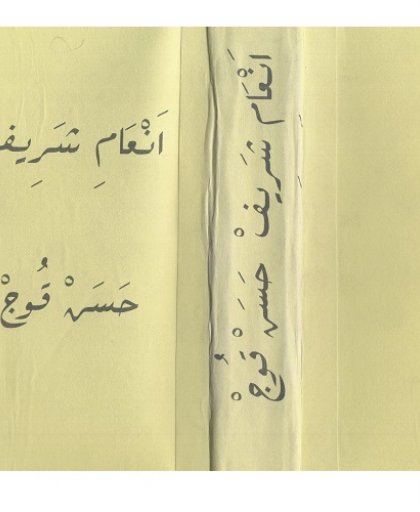 اَنْعَامِ شَرِيف
حَسَنْ قُوجْ
اَنْعَامِ شَرِيفْ حَسَنْ قُوجْ